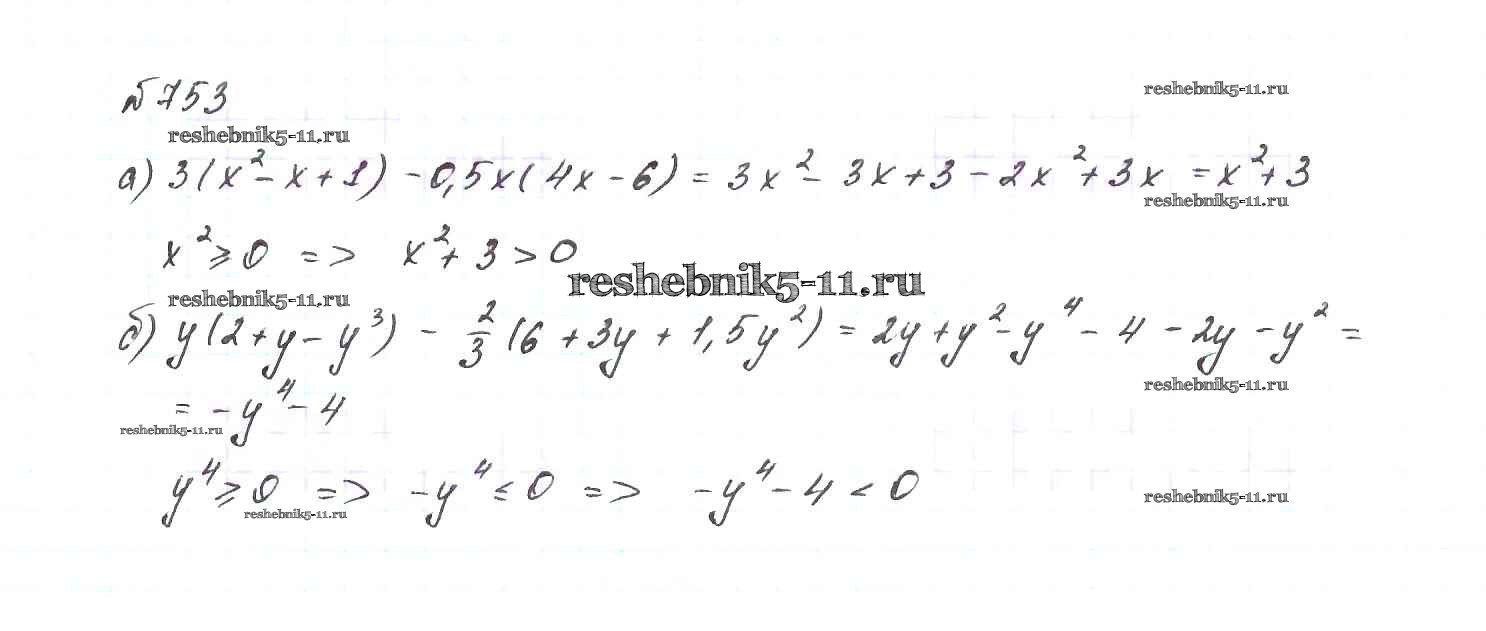 №753
reshebnik5-11.ru
reshebnik5-11.ru
а) 3(x²-x+1) -0,5x(4x-6) = 3x²-3x+3-2x²+3x = x²+3
reshebnik5-11.ru
x²≥0 => x²+3>0
reshebnik5-11.ru
reshebnik5-11.ru
б) y(2+y-y³) - 2/3(6+3y+1,5y²) = 2y+y²-y⁴-4-2y-y² =
reshebnik5-11.ru
= -y⁴-4
reshebnik5-11.ru
y⁴≥0 => -y⁴≤0 => -y⁴-4<0
reshebnik5-11.ru
reshebnik5-11.ru